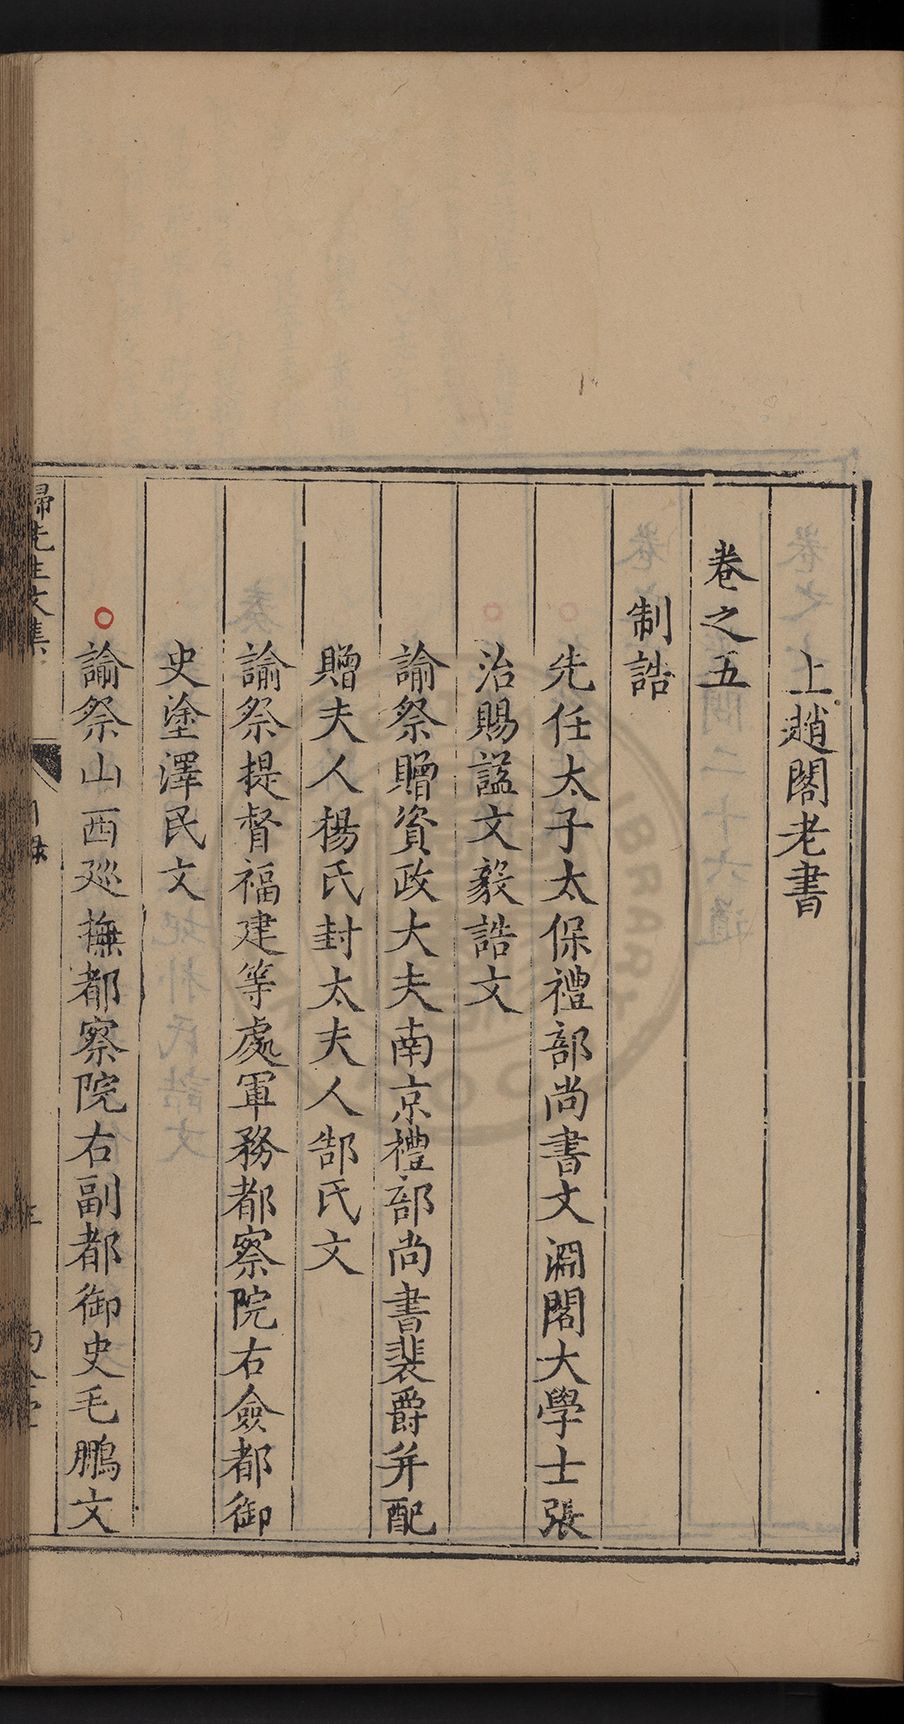 上趙閣老書
卷之五
制誥
先任太子太保禮部尚書文淵閣大學士張
治賜諡文毅誥文
諭祭贈資政大夫南京禮部尚書裴爵并配
贈夫人楊氏封太夫人郜氏文
諭祭提督福建等處軍務都察院右僉都御
史塗澤民文
諭祭山西廵撫都察院右副都御史毛鵬文
歸先生文集
目錄